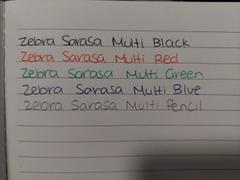 Zebra Sarasa Multi Black
Zebra Sarasa Multi Red
Zebra Sarasa Multi Green
Zebra Sarasa Multi Blue
Zebra Sarasa Multi Pencil